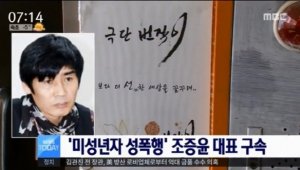 07:14
MBC
극단 번작이
보다 더 선한 세상을 꿈꾸며..
NEWS
TODAY
'미성년자 성폭행' 조증윤 대표 구속
정치
김관진 전 장관, 美 방산 로비업체로부터 억대 금품 수수 의혹